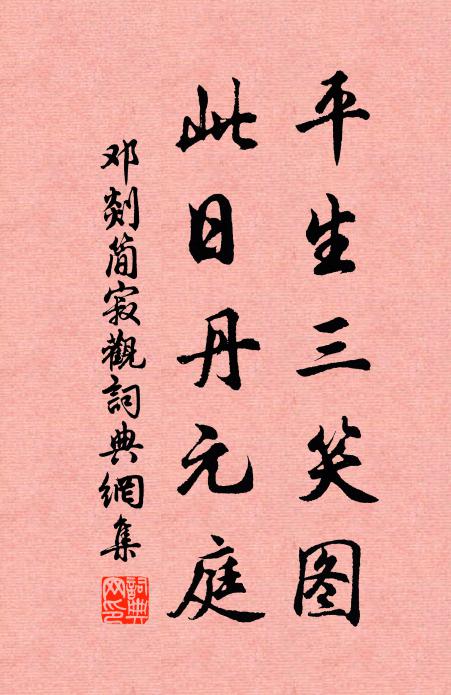 平生三笑图
此日丹元庭
邓剡简寂觀詞典網集
詞典网印